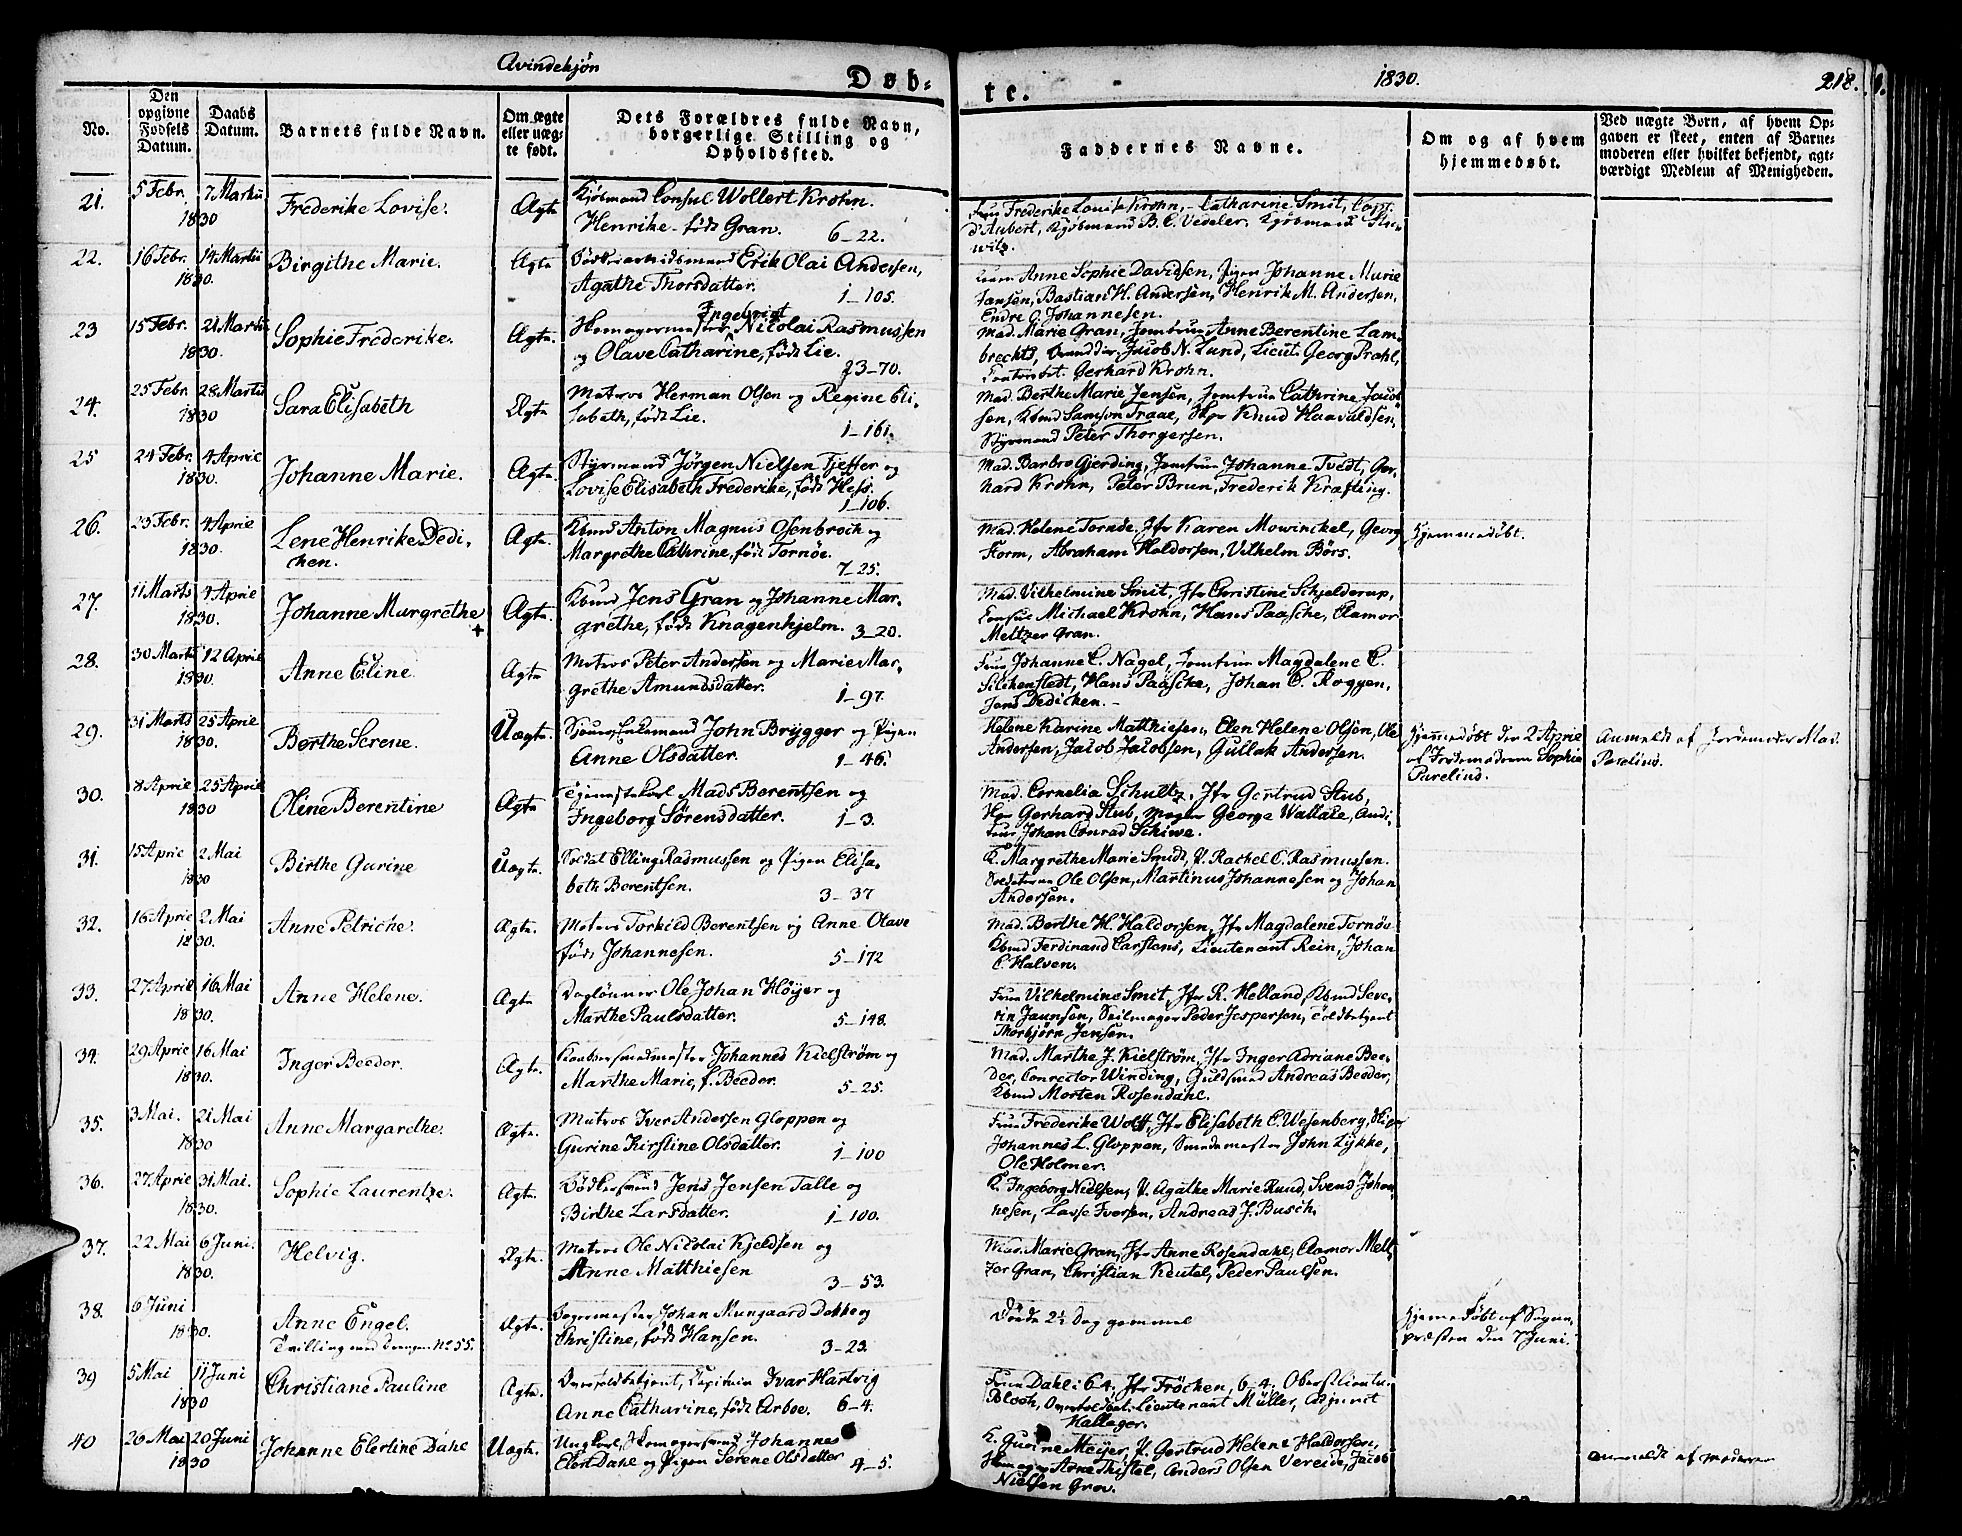 Qvindekjön
Døb-
te.
1830.
218.
No.
Den opgivne Fødsels Datum.
Daabs Datum.
Barnets fulde Navn.
Om ægte eller uægte født.
Dets Forældres fulde Navn, borgerlige Stilling og Opholdssted.
Faddernes Navne.
Om og af hvem hjemmedøbt.
Ved uægte Børn, af hvem Opgaven er skeet, enten af Barnemoderen eller hvilket bekjendt, agtværdigt Medlem af Menigheden.
21. 5 Febr. 1830 7 Martii Frederike Lovise. Ægte Kjøbmand Consul Wollert Krohn.
Henrike født Gran. 6-22.
Frue Frederike Louise Krohn, Catharine Smit, Capt.
d'Aubert, Kjøbmand B. C. Vedeler, Kjøbmand
22. 16 Febr. 1830. 14 Martii Birgithe Marie. Ægte Erik Olai Andersen,
Agathe Thorsdatter. 1-105.
Anne Sophie Davidsen, Pigen Johanne Marie
Jansen, Bastian H. Andersen, Henrik M. Andersen,
Endre O. Johannesen.
23 15 Febr. 1830. 21 Martii Sophie Frederike. Ægte. Skomagermester Ingebrigt Nicolai Rasmussen
og Olave Catharine, født Lie. 23-70.
Mad. Marie Gran, Jomfrue Anne Berentine Lam-
brechts, Jacob N. Lund, Lieut. Georg Prahl,
Gerhard Krohn.
24. 25 Febr. 1830 28 Martii Sara Elisabeth Ægte Matros Herman Olsen og Regine Eli-
sabeth, født Lie. 1-161.
Mad. Berthe Marie Jensen, Jomfrue Cathrine Jacob-
sen, Kbmd Samson Traae, Skpr Knud Haavaldsen,
Styrmand Peter Thorgersen.
25 24 Febr. 1830. 4 April Johanne Marie. Ægte. Styrmand Jörgen Nielsen Tjeffer og
Lovise Elisabeth Frederike, født Hess. 1-106.
Mad. Barbro Gjerding, Jomfrue Johanne Tvedt, Ger-
hard Krohn, Peter Brun, Frederik Kræfting.
26. 23 Febr. 1830. 4 April Lene Henrike Dedi-
chen. Ægte. Kbmd Anton Magnus Osenbroch og
Margrethe Cathrine, født Tornøe. 7-25.
Mad. Helene Tornøe, Jfr Karen Mowinckel, Georg
Form, Abraham Haldorsen, Vilhelm Börs.
Hjemmedöbt.
27. 11 Marts 1830. 4 April Johanne Margrethe + Ægte. Kbmd Jens Gran og Johanne Mar-
grethe, født Knagenhjelm. 3-20.
Mad. Vilhelmine Smit, Jfr Christine Schjelderup,
Consul Michael Krohn, Hans Paasche, Clamor
Meltzer Gran.
28. 30 Marts 1830. 12 April Anne Eline. Ægte Matros Peter Andersen og Marie Mar-
grethe Amundsdatter. 1-97.
Frue Johanne C. Nagel, Jomfrue Magdalene C.
Silchenstedt, Hans Paasche, Johan C. Rogyen,
Jens Dedichen.
29. 31 Marts 1830. 25 April Berthe Serene. Uægte. John Brygger og Pigen
Anne Olsdatter. 1-46.
Helene Karine Matthiesen, Elen Helene Olsen, Ole
Andersen, Jacob Jacobsen, Gullak Andersen.
Hjemmedöbt den 2 April
af Jordemoderen Sophie
Parelius.
Anmeldt af Jordemoder Mad.
Parelius.
30. 8 April 1830 25 April Oline Berentine Ægte Tjenestekarl Mads Berentsen og
Ingeborg Sörensdatter. 1-3.
Mad. Cornelia Schultz, Jfr Gertrud Stub,
Skpr Gerhard Stub, Mægler George Wallace, Audi-
teur Johan Conrad Schiwe.
31. 15 April 1830 2 Mai Birthe Gurine Uægte. Soldat Elling Rasmussen og Pigen Elisa-
beth Berentsen. 3-37
K. Margrethe Marie Smidt, P. Rachel C. Rasmussen.
Soldaterne Ole Olsen, Martinus Johannesen og Johan
Andersen.
32. 16 April 1830. 2 Mai Anne Petriche. Ægte. Matros Torkild Berentsen og Anne Olave
født Johannesen. 5-172
Mad. Berthe H. Haldorsen, Jfr Magdalene Tornöe
Kbmd Ferdinand Carstens, Lieutenant Rein, Johan
C. Halven.
33. 27 April 1830. 16 Mai Anne Helene. Ægte Daglönner Ole Johan Höyer og
Marthe Paulsdatter. 5-148.
Frue Vilhelmine Smit, Jfr R. Helland, Kbmd Seve-
rin Jaunsen, Seilmager Peder Jespersen, Toldbetjent
Thorbjörn Jensen.
34. 29 April 1830. 16 Mai Inger Beeder. Ægte. Kobbersmedmester Johannes Kielström og
Marthe Marie, f. Beeder. 5-25.
Mad. Marthe J. Kielström, Jfr Inger Adriane Bee-
der, Conrector Winding, Guldsmed Andreas Beeder,
Kbmd Morten Rosendahl.
35. 3 Mai. 1830 21 Mai Anne Margarethe. Ægte. Matros Iver Andersen Gloppen og
Gurine Kirstine Olsdatter. 1-100
Frue Frederike Wolff, Jfr Elisabeth C. Wesenberg,
Johannes L. Gloppen, Smedemester John Lykke,
Ole Holmer.
36. 27 April 1830. 31 Mai. Sophie Laurentze. Ægte. Bödkersvend Jens Jensen Talle og
Birthe Larsdatter. 1-100.
K. Ingeborg Nielsen, P. Agathe Marie Rund, Svend Johan-
nesen, Lasse Iversen, Andreas J. Busch.
37. 22 Mai 1830. 6 Juni. Helvig. Ægte. Matros Ole Nicolai Kjeldsen og
Anne Matthiesen 3-53.
Mad. Marie Gran, Jfr Anne Rosendahl, Clamor Melt-
zer Gran, Christian Keutel, Peder Paulsen.
38. 6 Juni 1830. Anne Engel.
Tvilling med Drengen No 55. Ægte. Bagermester Johan Mungaard Dekke og
Christine, født Hansen. 3-23.
Döde 2½ Dag gammel
Hjemmedöbt af Sogne-
præsten den 7 Juni.
39 5 Mai 1830 11 Juni Christiane Pauline Ægte. Overtoldbetjent, Capitain Ivar Hartvig
Anne Catharine, født Arboe. 6-4.
Frue Dahl i 64, Jfr Fröchen, 6-4, Oberstlieutn.
Bloch, Lieutenant Müller, Adjunct
Hallager.
40 20 Mai 1830 20 Juni Johanne Elertine Dahl Uægte. Ungkarl, Skomagersvend Johannes
Elert Dahl og Pigen Serene Olsdatter 4-5.
K. Gurine Meyer, P. Gertrud Helene Haldorsen,
Skomager Arne Thistel, Anders Olsen Vereide, Jacob
Nielsen Grov.
Anmeldt af Moderen